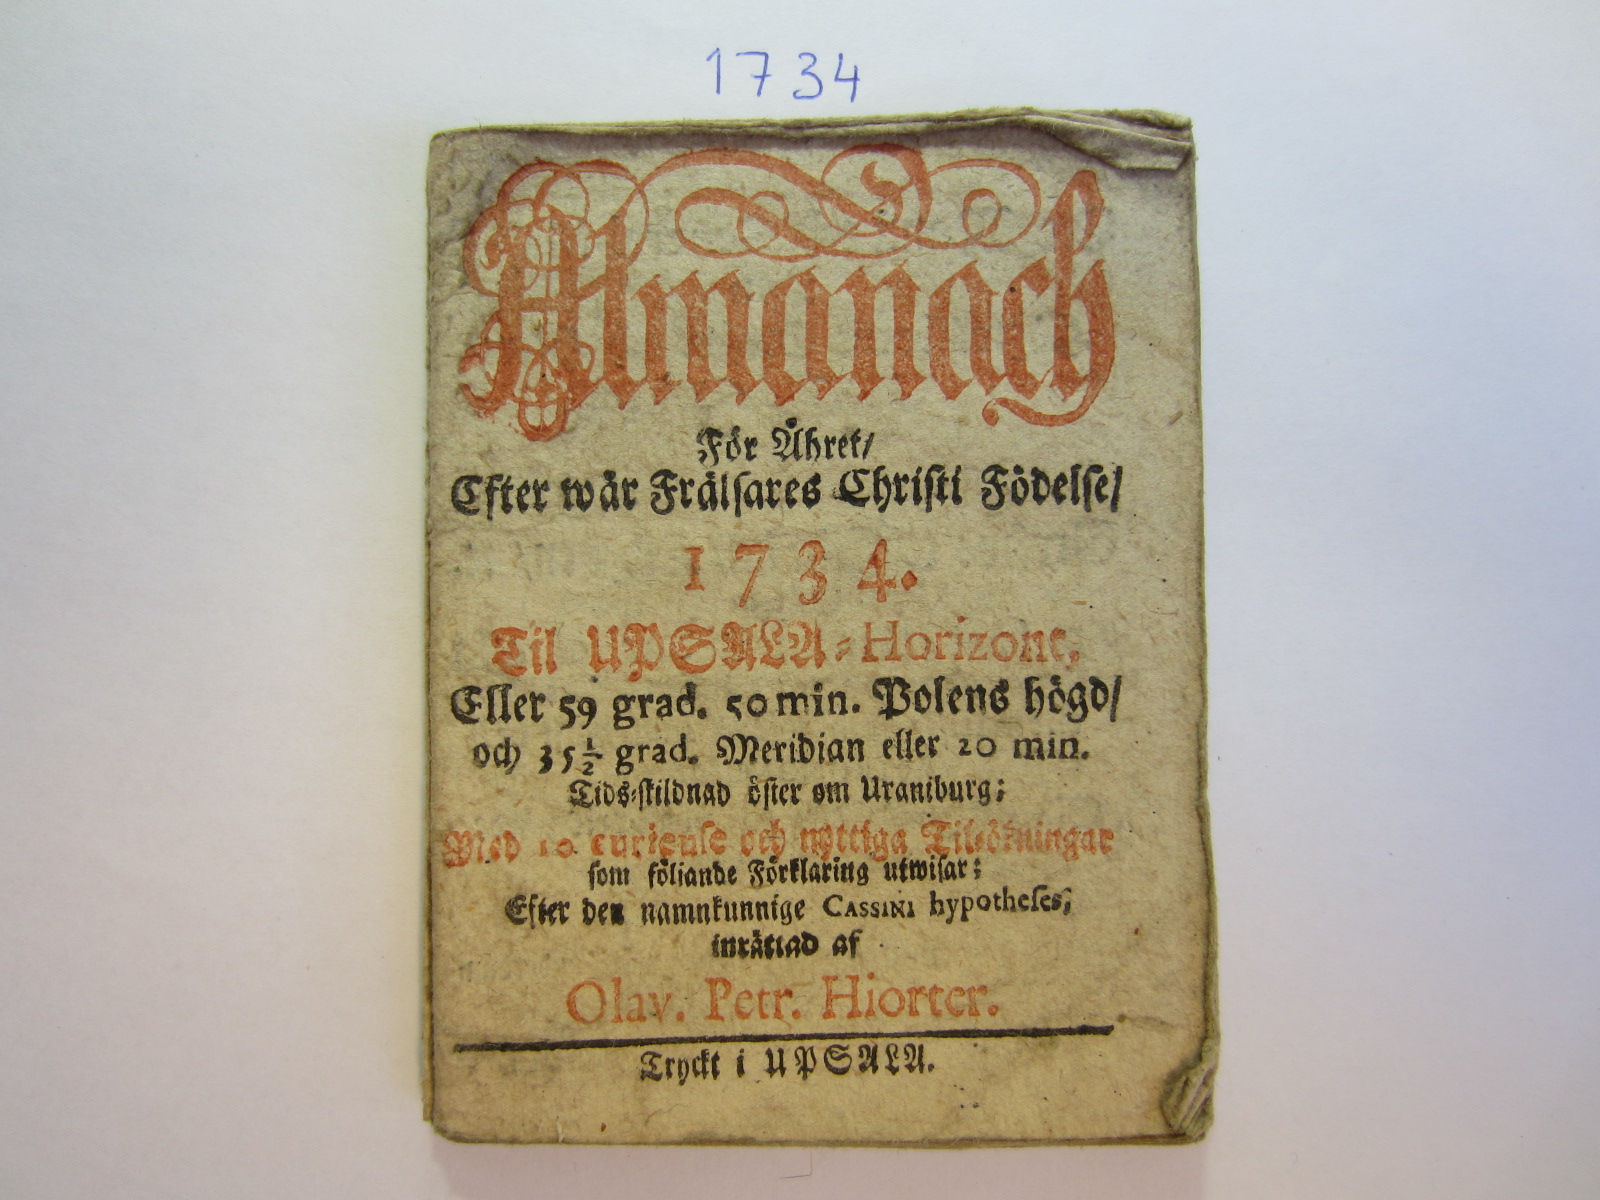 1734
Almanach
För Åhret/
Efter wår Frälsares Christi Födelse/
1734.
Til UPSALA-Horizont,
Eller 59 grad. 50 min. Polens högd/
och 35 1/2 grad. Meridian eller 20 min.
Tids-skildnad öster om Uraniburg;
Med 10 curieuse och nyttiga Til-ökningar
som följande Förklaring utwisar;
Efter den namnkunnige CASSINI hypotheses,
inrättad af
Olav. Petr. Hiorter.
Tryckt i UPSALA.